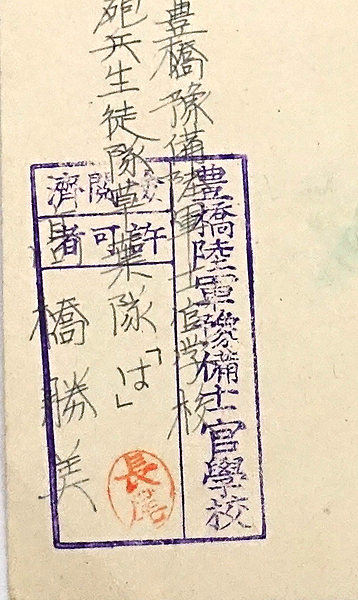 豊橋豫備陸軍士官学校
砲兵生徒隊草葉隊「は」
高橋勝美
豊橋陸軍豫備士官學校
閲濟
許可者
長尾